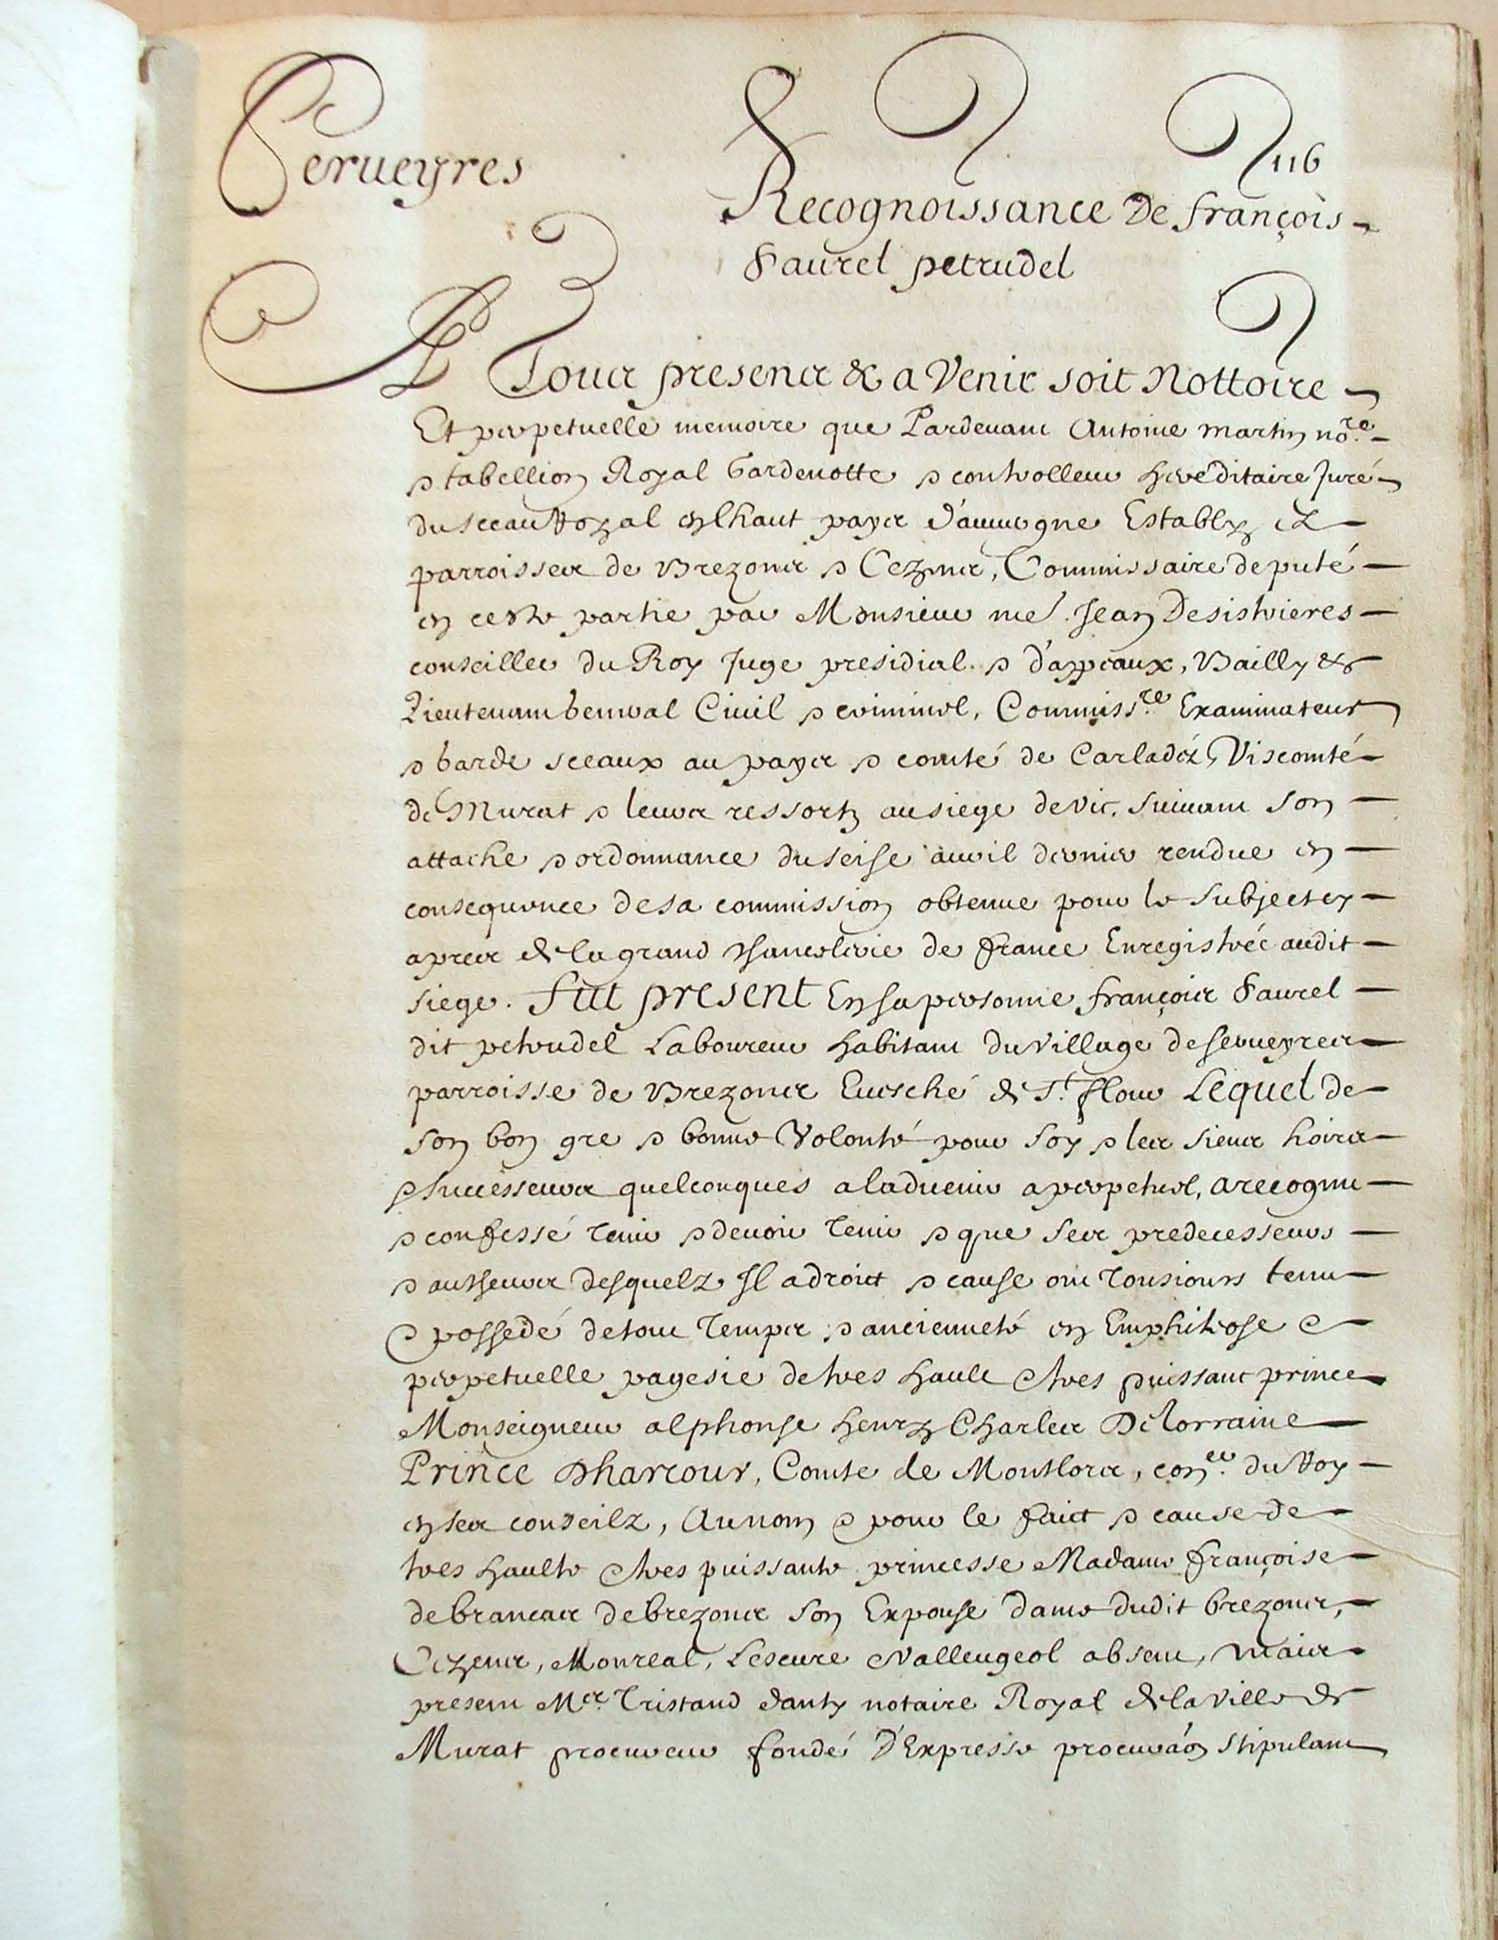 Serueyres
116
Recognoissance De françois
Saurel petrudel
A Tous presens & a Venir soit Nottoire
Et perpetuelle memoire que Pardeuant Antoine martin no.re
& tabellion Royal Gardenotte & controlleur hereditaire Juré
du sceau Royal en lhaut payis d'auuergne Estably ez
parroisses de Brezons & Cezens, Commissaire deputé
en ceste partie par Monsieur me. Jean Desistrieres
conseiller du Roy Juge presidial & d'appeaux, Bailly &
Lieutenant General Ciuil & criminel, Commiss.re Examinateur
& Garde sceaux au payis & comté de Carladéz, Viscomté
de Murat & leurs ressortz au siege de Vic, suiuant son
attache & ordonnance du seise auril dernier rendue en
consequence de sa commission obtenue pour le subject cy
apres de la grand Chancelerie de france Enregistrée audit
siege. fut present En sa personne françois Saurel
dit petrudel Laboureur habitant du Village de serueyres
parroisse de Brezons Euesché de St. flour Lequel de
son bon gre & bonne Volonté pour soy & les siens hoirs
& successeurs quelconques a laduenir a perpetuel, a recognu
& confessé tenir & deuoir tenir & que ses predecesseurs
& autheurs desquelz Il a droict & cause ont tousiours tenu
& possedé de tout temps & ancienneté en Emphiteose &
perpetuelle pagesie de tres hault & tres puissant prince
Monseigneur alphonse henry Charles De lorraine
Prince Dharcour, Comte de Montlors, con.er du Roy
en ses conseilz, Au nom & pour le faict & cause de
tres haulte & tres puissante princesse Madame françoise
de brancas de brezons son Expouse dame dudit brezons,
Cezens, Monreal, Lescure & Valleugeol absent, mais
present Mr. Tristand danty notaire Royal de la Ville de
Murat procureur fondé d'Expresse procuraõn stipulant